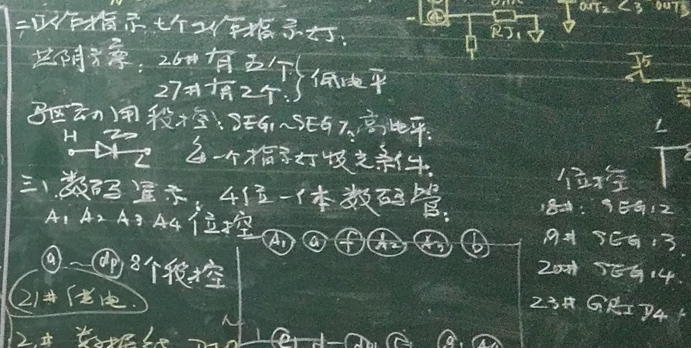 二、工作指示 七个工作指示灯.
共阴方案: 26# 有五个 低电平
27# 有2个.
驱动用段控: SEG1~SEG7. 高电平.
H L 每一个指示灯发光条件.
三、数码显示: 4位一体数码管.
A1 A2 A3 A4 位控
a ~ dp 8个段控
A1 a f A2 A3 b
21# 供电
位控
18#: SEG12
19# SEG13
20# SEG14
23# GRID4
RJ1
OUT2 < 3 OUT3